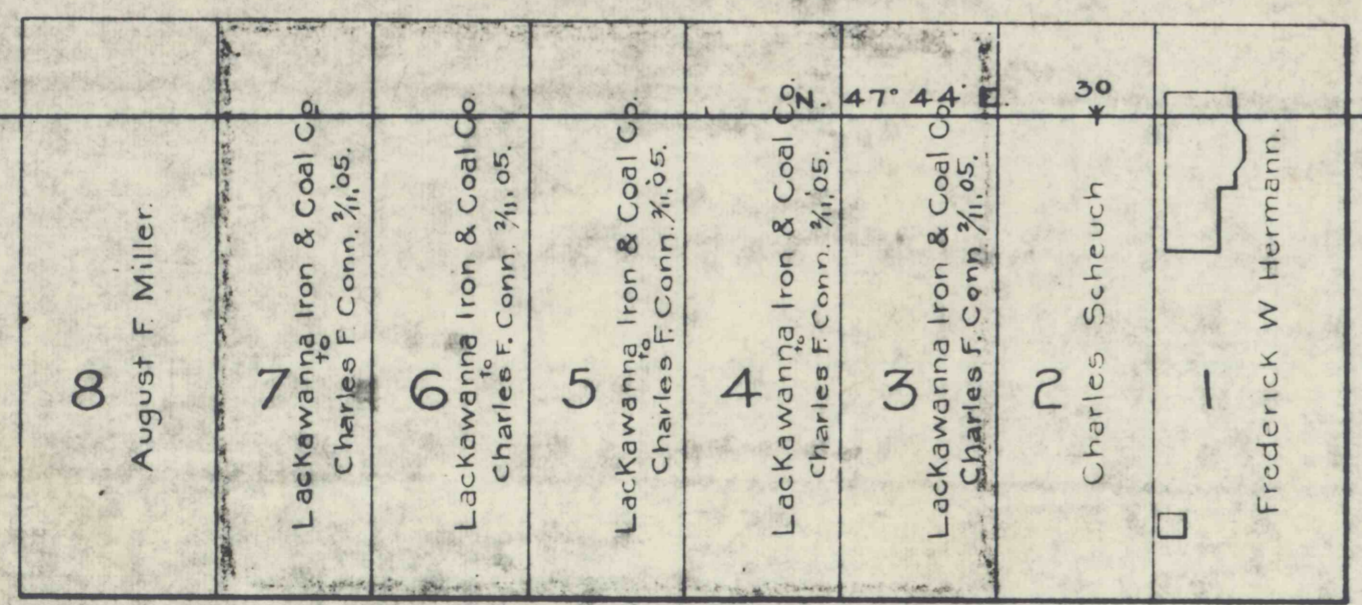 8
August F. Miller.
7
Lackawanna Iron & Coal Co.
to
Charles F. Conn. 2/11, '05.
6
Lackawanna Iron & Coal Co.
to
Charles F. Conn. 2/11, '05.
5
Lackawanna Iron & Coal Co.
to
Charles F. Conn. 2/11, '05.
4
Lackawanna Iron & Coal Co.
to
Charles F. Conn. 2/11, '05.
3
Lackawanna Iron & Coal Co.
Charles F. Conn 2/11, '05.
N. 47° 44' E.
2
Charles Scheuch
30
1
Frederick W Hermann.